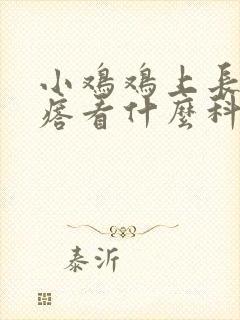 小鸡鸡上長
痞看什麼科
泰沂